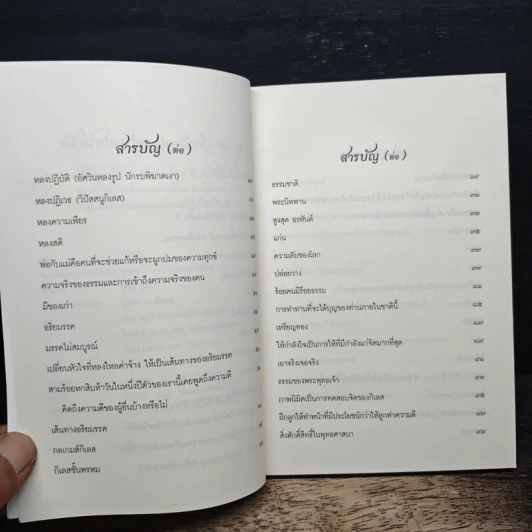 สารบัญ (ต่อ)
หลงปฏิบัติ (อัศวินหลงรูป นักรบพิฆาตเงา)
หลงปฏิเวธ (วิปัสสนูกิเลส)
หลงความเพียร
หลงสติ
พ่อกับแม่คือคนที่จะช่วยแก้หรือจะผูกปมของความทุกข์
ความจริงของธรรมและการเข้าถึงความจริงของคน
มีของเก่า
อริยมรรค
มรรคไม่สมบูรณ์
เปลี่ยนหัวใจที่หลงใหลค่าจ้าง ให้เป็นเส้นทางของอริยมรรค
สามร้อยหกสิบห้าวันในหนึ่งปีตัวของเรานี้เคยพูดถึงความดี
คิดถึงความดีของผู้อื่นบ้างหรือไม่
เส้นทางอริยมรรค
กลเกมส์กิเลส
กิเลสชั้นพรหม
สารบัญ (ต่อ)
ธรรมชาติ
พระนิพพาน
สูงสุด อรหันต์
แก่น
ความลับของโลก
ปล่อยวาง
ร้อยคนมีร้อยธรรม
การทำทานที่จะได้บุญของท่านภายในชาตินี้
เหรียญทอง
ให้กำลังใจเป็นการให้ที่มีกำลังแก่จิตมากที่สุด
เอาจริงเจอจริง
ธรรมของพระพุทธเจ้า
ภาพนิมิตเป็นการทดสอบจิตของกิเลส
ฝึกลูกให้ทำหน้าที่มีประโยชน์กว่าให้ลูกทำความดี
สิ่งศักดิ์สิทธิ์ในพุทธศาสนา